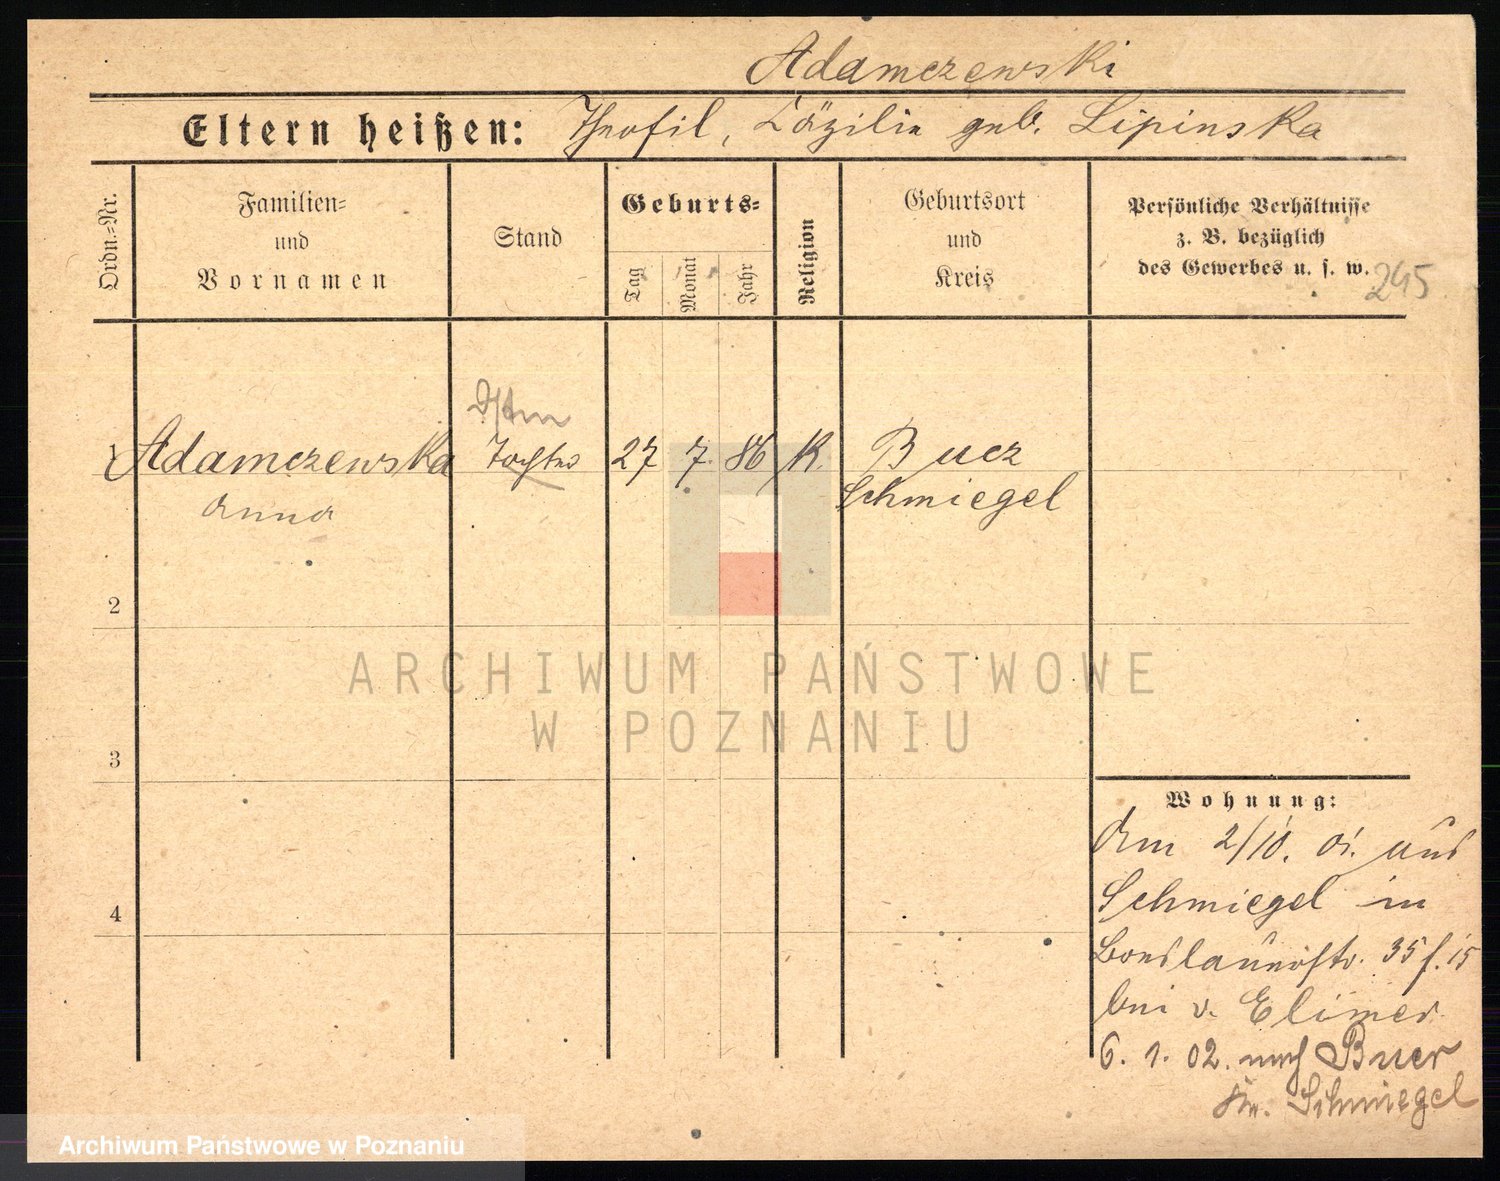 Adamczewski
Eltern heißen: Theofil, Cäzilie geb. Lipinska
Ordn.-Nr.
Familien-
und
Vornamen
Stand
Geburts-
Tag
Monat
Jahr
Religion
Geburtsort
und
Kreis
Persönliche Verhältnisse
z. B. bezüglich
des Gewerbes u. s. w.
245
1 Adamczewska Tochter 27 7. 86 K. Bucz
Anna Schmiegel
2
3
4
ARCHIWUM PAŃSTWOWE
W POZNANIU
Wohnung:
Am 2/10. 01. aus
Schmiegel in
35
bei v.
6. 1. 02. nach
Kr. Schmiegel
Archiwum Państwowe w Poznaniu